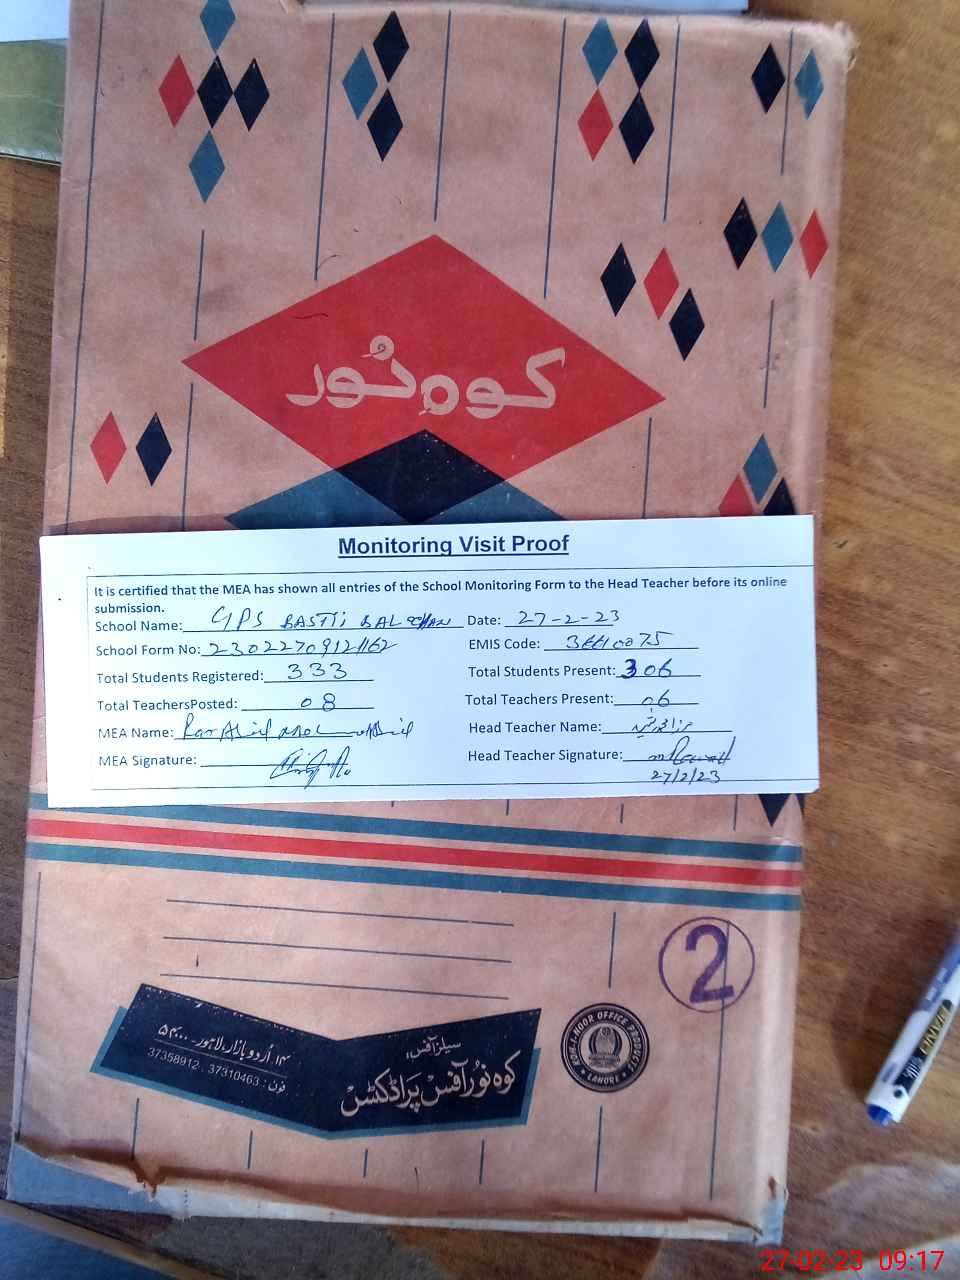 کوہِ نُور
Monitoring Visit Proof
It is certified that the MEA has shown all entries of the School Monitoring Form to the Head Teacher before its online
submission.
School Name: GPS BASTI Date: 27-2-23
School Form No: EMIS Code:
Total Students Registered: 333 Total Students Present: 306
Total TeachersPosted: 08 Total Teachers Present: 06
MEA Name: Head Teacher Name:
MEA Signature: Head Teacher Signature:
27/2/23
2
سیلز آفس:
کوہ نُور آفس پَراڈکٹس
۱۴ اُردو بازار، لاہور۔ ۵۴۰۰۰
فون : 37310463 ، 37358912
KOH-I-NOOR OFFICE PRODUCTS
LAHORE
27-02-23 09:17